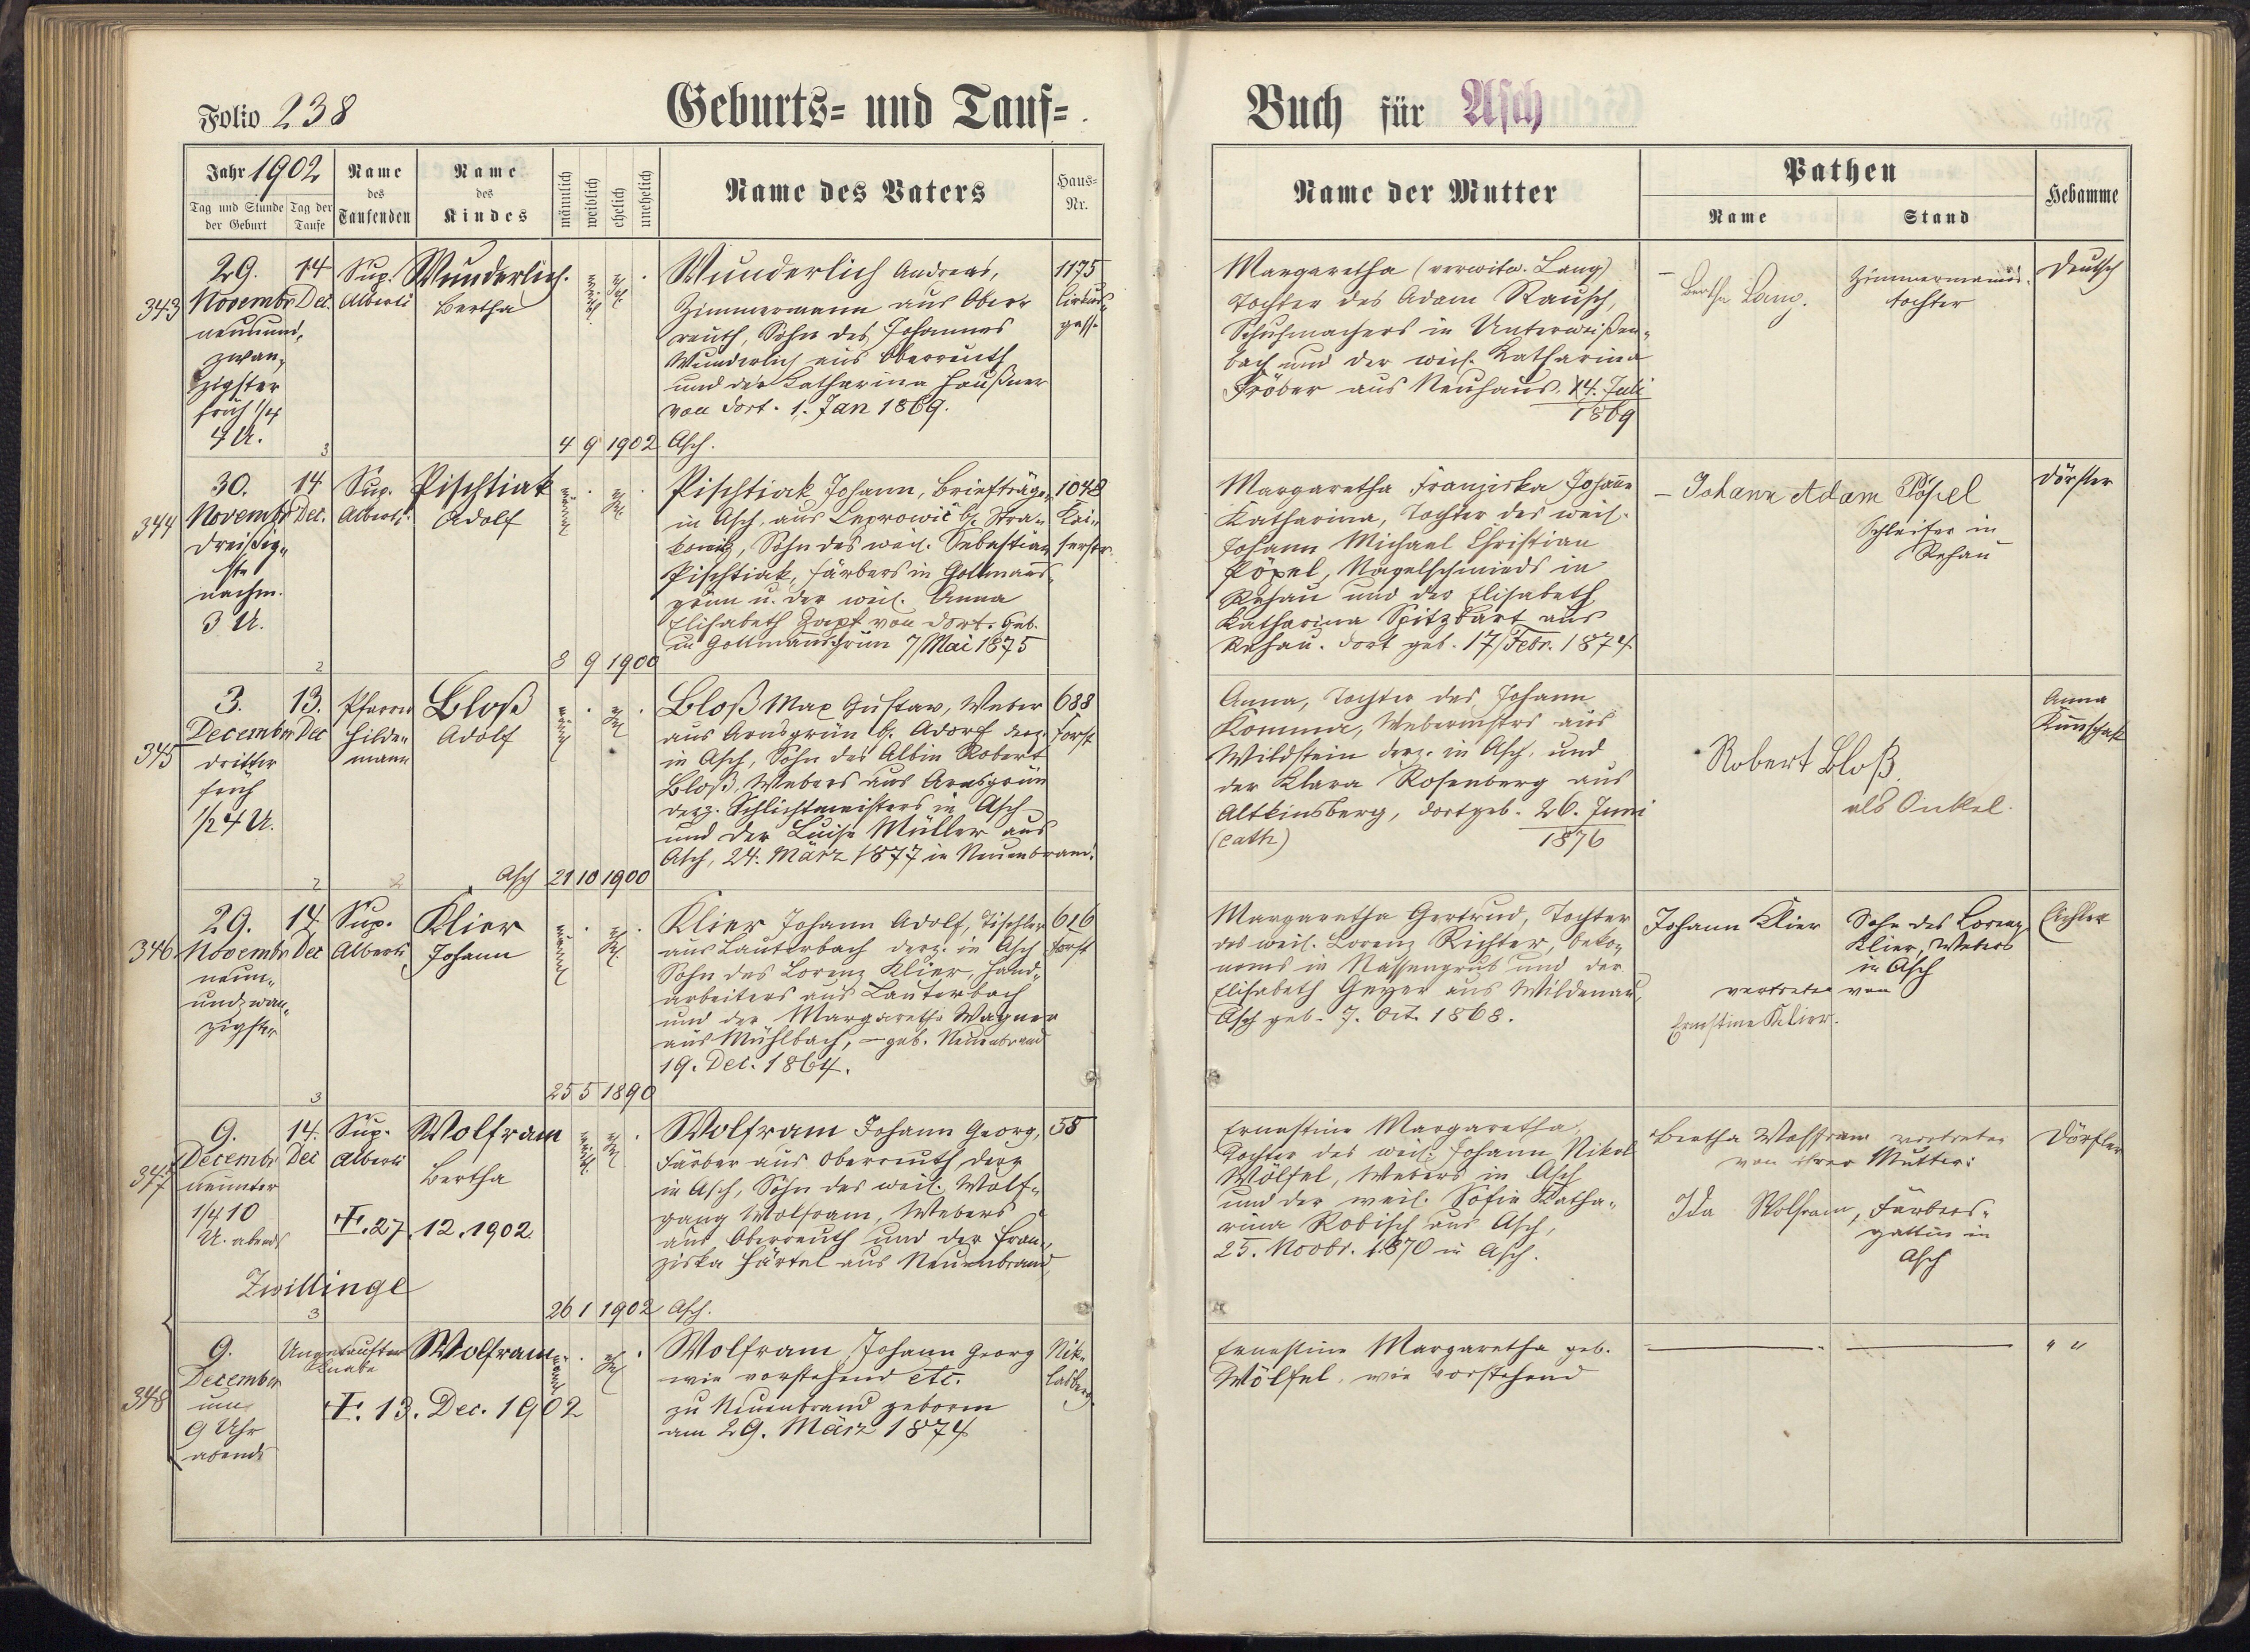 Folio 238
Geburts- und Tauf-
Buch für Asch
Jahr 1902
Tag und Stunde der Geburt
Tag der Taufe
Name des Taufenden
Name des Kindes
männlich
weiblich
ehelich
unehelich
Name des Vaters
Haus-Nr.
Name der Mutter
Pathen
Name
Stand
Hebamme
343
29. Novembr
neunund-
zwan-
zigster
früh 1/4
4 U.
14 Dec.
Sup. Alberti
Wunderlich
Bertha
Wunderlich Andreas,
Zimmermann aus Ober-
reuth, Sohn des Johannes
Wunderlich aus Oberreuth
und der Katharina Haußner
von dort. 1. Jan 1869.
4 9 1902 Asch.
1175
gasse
Margaretha (verwitw. Lang)
Tochter des Adam Rausch,
Schuhmachers in Unterweißen-
bach und der weil. Katharina
Fröber aus Neuhaus. 14. Juli
1869
Bertha Lang.
Zimmermanns-
tochter
Deutsch
344
30. Novembr
dreißig-
ste
nachm.
3 U.
14 Dec.
Sup. Alberti
Pischtiak
Adolf
Pischtiak Johann, Briefträger
in Asch, aus Leprowič b. Stra-
konitz, Sohn des weil. Sebastian
Pischtiak, Färbers in Gottmanns-
grün u. der weil. Anna
Elisabeth Zapf von dort. Geb.
in Gottmannsgrün 7/Mai 1875
8 9 1900
1048
Kai-
serstr.
Margaretha Franziska Johanne
Katharina, Tochter des weil.
Johann Michael Christian
Pöpel, Nagelschmieds in
Rehau und der Elisabeth
Katharina Spitzbart aus
Rehau. dort geb. 17/Febr. 1874
Johann Adam Pöpel
Schleifer in
Rehau
Dörfler
345
3. December
dritter
früh
1/2 4 U.
13. Dec
Pfarrer
Hilde-
mann
Bloß
Adolf
Bloß Max Gustav, Weber
aus Arnsgrün b. Adorf derz.
in Asch, Sohn des Albin Robert
Bloß, Webers aus Arnsgrün
derz. Schlichtmeisters in Asch
und der Luise Müller aus
Asch, 24. März 1877 in Neuenbrand.
Asch 21 10 1900
688
Forst
Anna, Tochter des Johann
Komma, Webermstrs aus
Wildstein derz. in Asch, und
der Klara Rosenberg aus
Altkinsberg, dort geb. 26. Juni
(cath) 1876
Robert Bloß.
als Onkel.
Anna
346
29. Novembr
neun-
undzwan-
zigster
14 Dec
Sup. Alberti
Klier
Johann
Klier Johann Adolf, Tischler
aus Lauterbach derz. in Asch
Sohn des Lorenz Klier, Hand-
arbeiters aus Lauterbach
und der Margaretha Wagner
aus Mühlbach, - geb. Neuenbrand
19. Dec. 1864.
25 5 1890
616
Forst
Margaretha Gertrud, Tochter
des weil. Lorenz Richter, Oeko-
noms in Nassengrub und der
Elisabeth Geyer aus Wildenau,
Asch geb. 7. Oct. 1868.
Johann Klier
Sohn des Lorenz
Klier, Webers
in Asch
vertreten von
Ernestine Klier.
Eichler
347
9. Decembr
neunter
1/4 10
U. abends
14. Dec
Sup. Alberti
Wolfram
Bertha
†. 27. 12. 1902.
Zwillinge
Wolfram Johann Georg,
Färber aus Oberreuth derz
in Asch, Sohn des weil. Wolf-
gang Wolfram, Webers
aus Oberreuth und der Fran-
ziska Härtel aus Neuenbrand,
26 1 1902 Asch.
58
Ernestine Margaretha,
Tochter des weil. Johann Nikol
Wölfel, Webers in Asch
und der weil. Sofie Katha-
rina Robisch aus Asch,
25. Novbr. 1870 in Asch.
Bertha Wolfram vertreten
von ihrer Mutter:
Ida Wolfram, Färbers-
gattin in
Asch
Dörfler
348
9. December
um
9 Uhr
abends
Ungetaufter
Knabe
Wolfram
†. 13. Dec. 1902
Wolfram Johann Georg
wie vorstehend etc.
zu Neuenbrand geboren
am 29. März 1874
Nik-
lasberg
Ernestine Margaretha geb.
Wölfel, wie vorstehend
" "